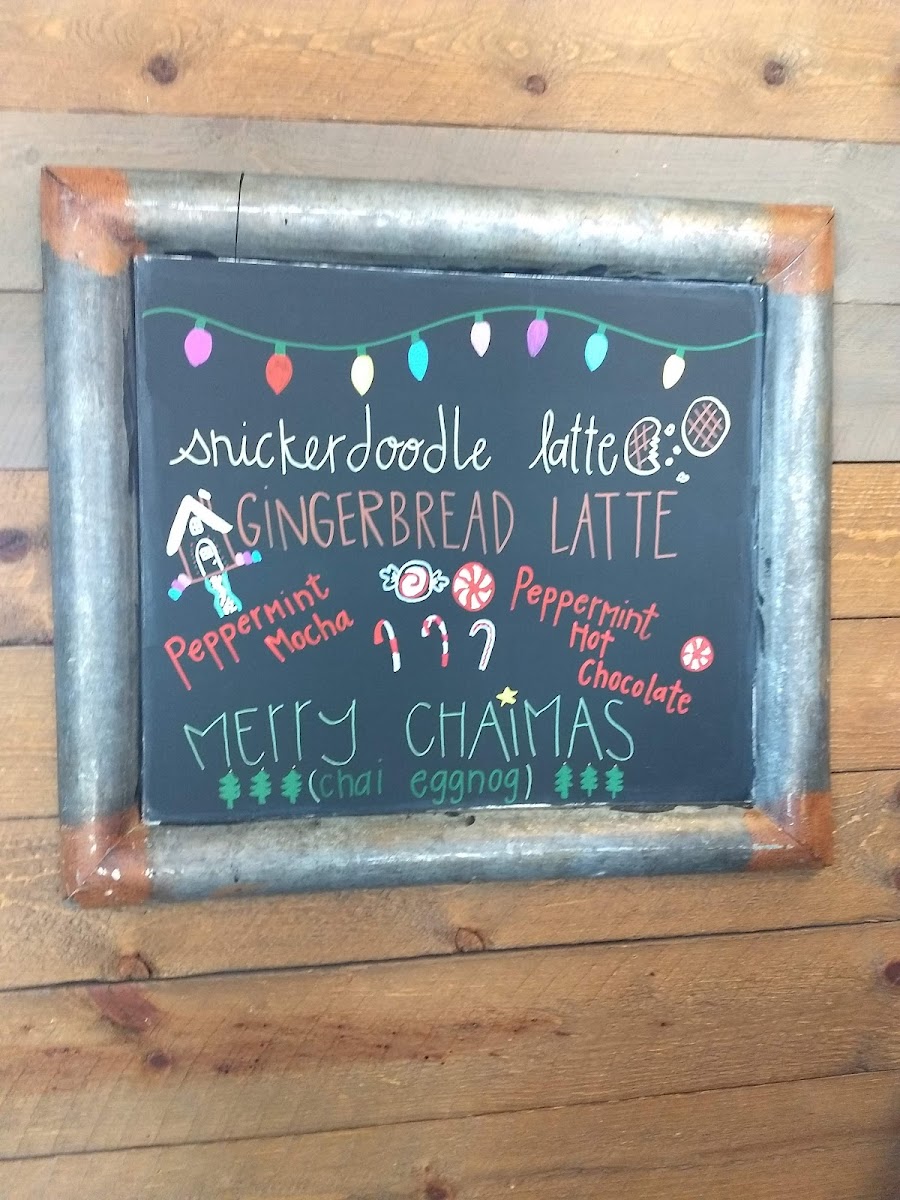 snickerdoodle latte
GINGERBREAD LATTE
Peppermint
Mocha
Peppermint
Hot
Chocolate
MErry CHAiMAS
(chai eggnog)